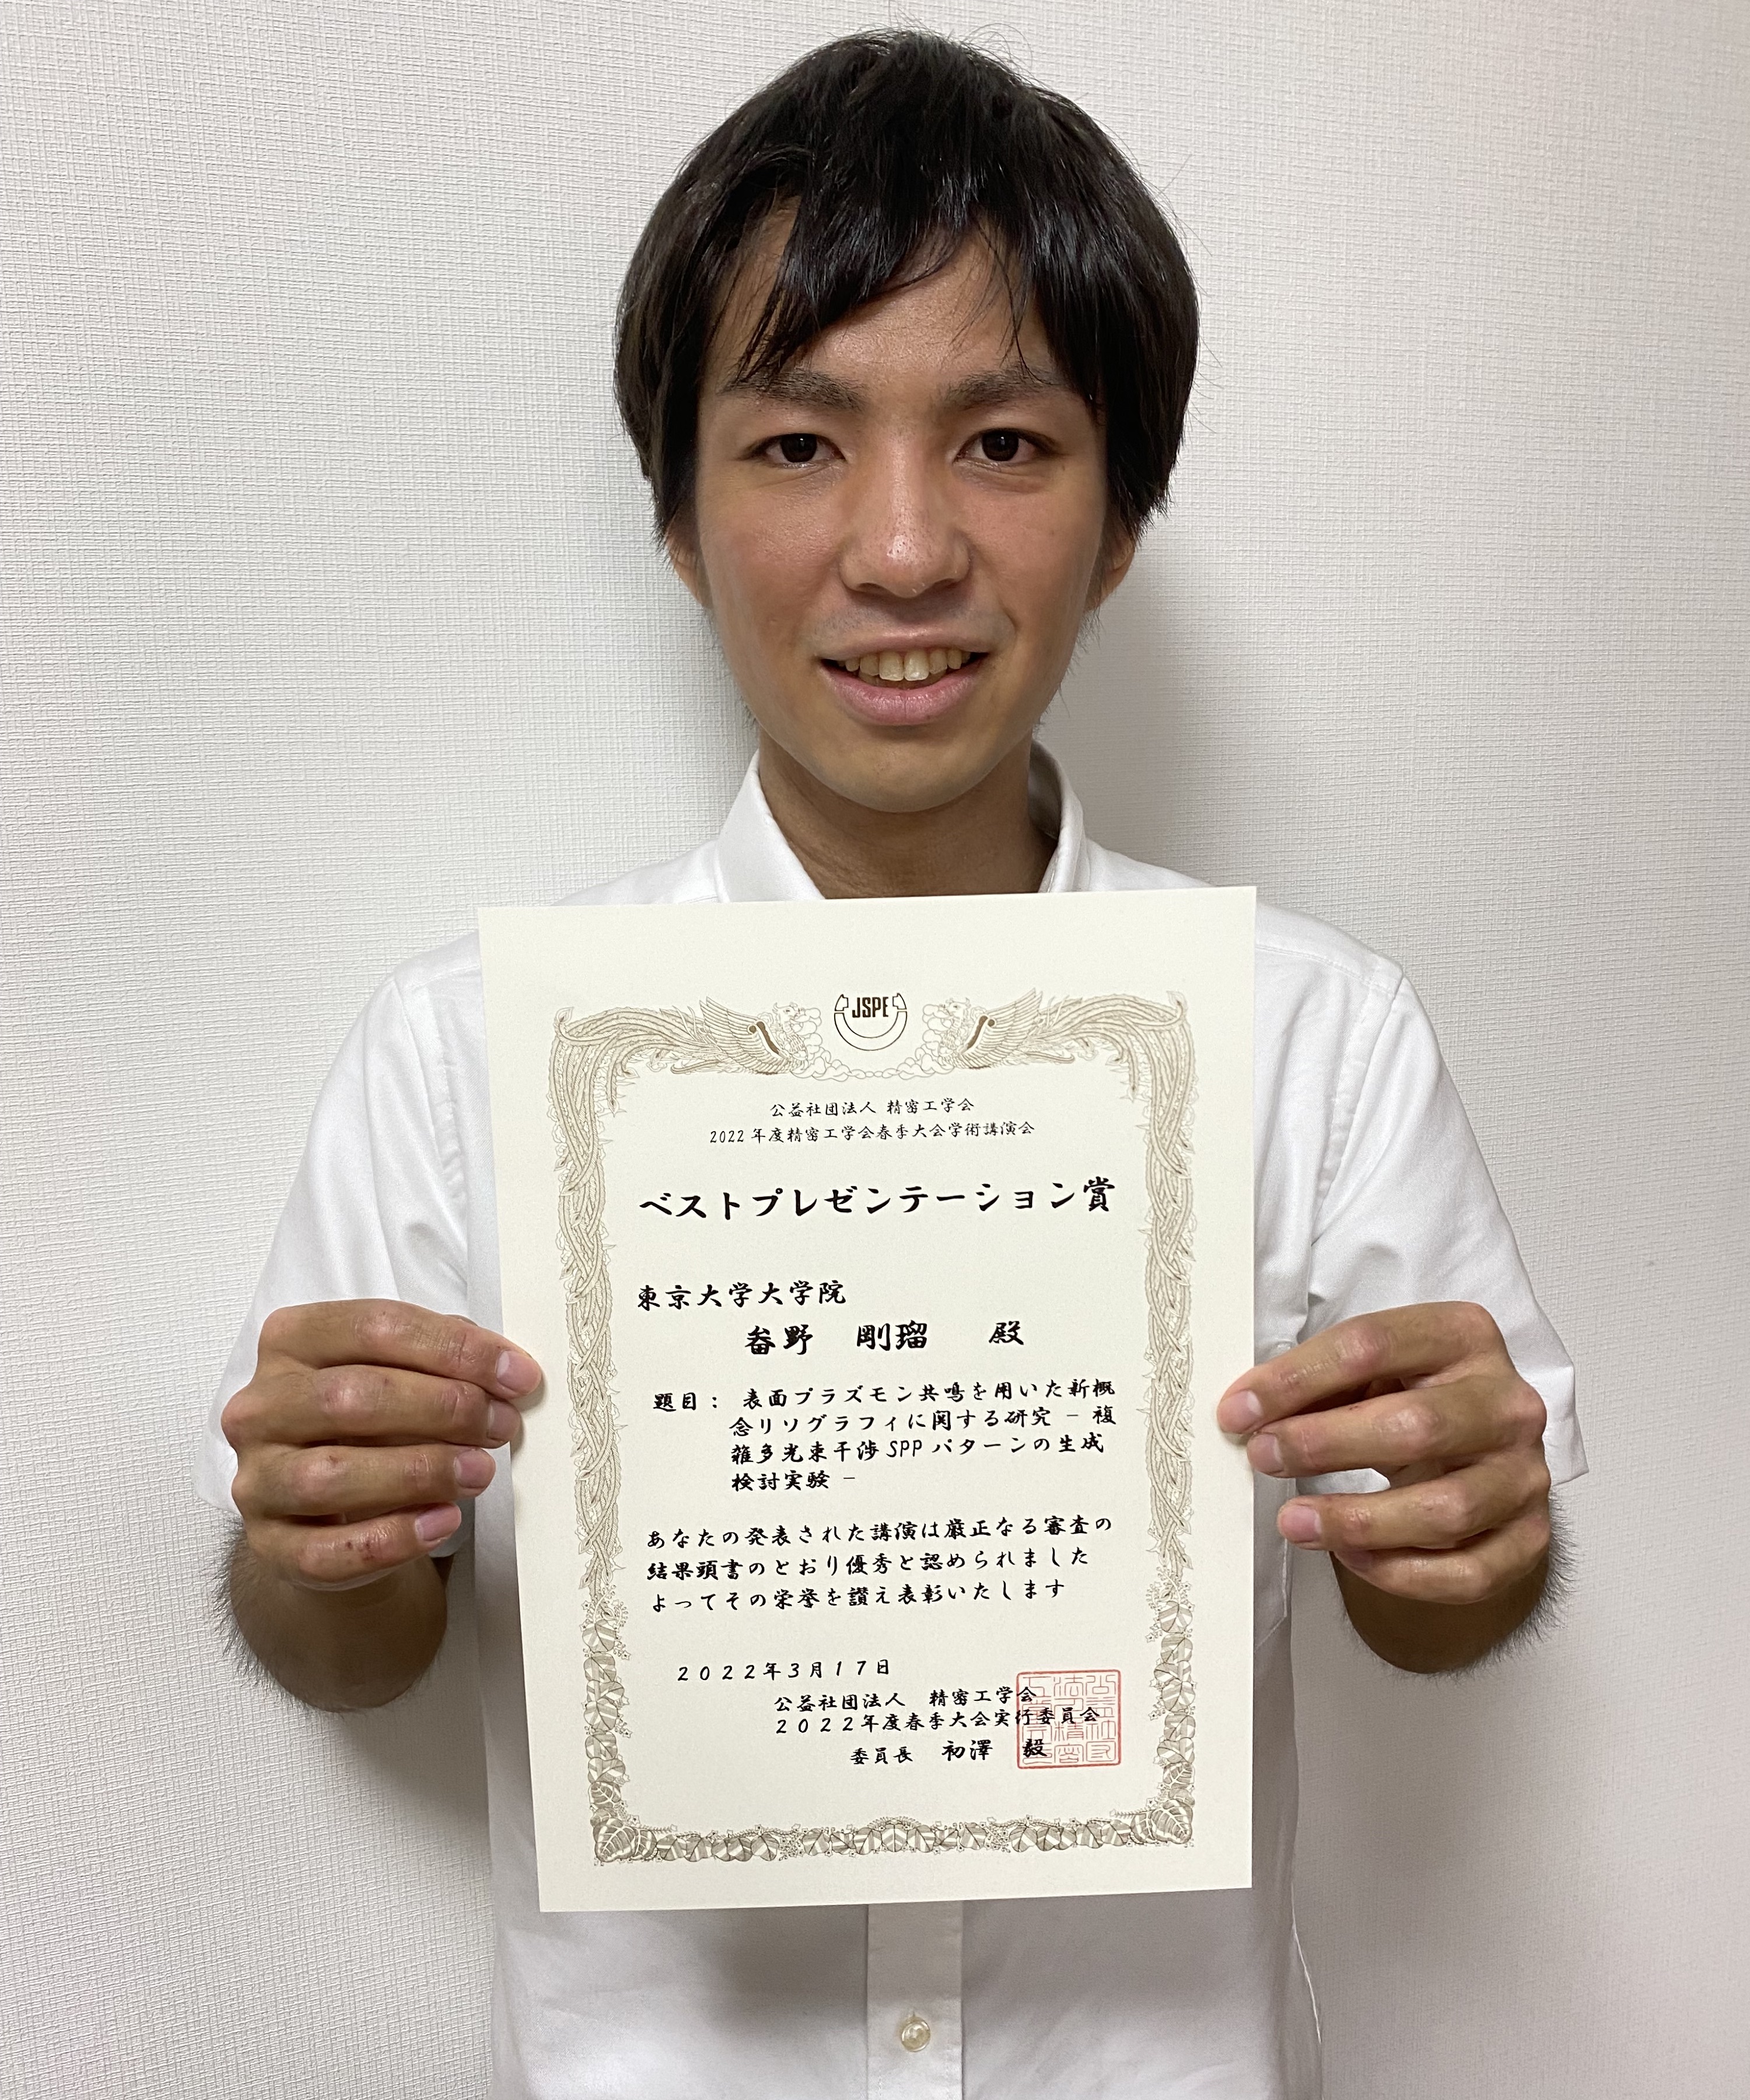 JSPE
公益社団法人 精密工学会
2022 年度精密工学会春季大会学術講演会
ベストプレゼンテーション賞
東京大学大学院
畚野 剛瑠 殿
題目： 表面プラズモン共鳴を用いた新概
念リソグラフィに関する研究 － 複
雑多光束干渉 SPP パターンの生成
検討実験 －
あなたの発表された講演は厳正なる審査の
結果頭書のとおり優秀と認められました
よってその栄誉を讃え表彰いたします
２０２２年３月１７日
公益社団法人 精密工学会
２０２２年度春季大会実行委員会
委員長 初澤 毅